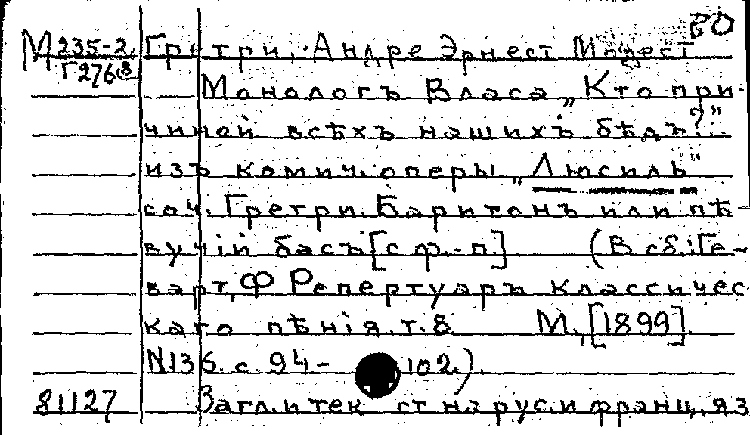 20
М 235-2 Гретри, Андре Эрнест Модест
Г276
Монологъ Власа „Кто при-
чиной всѣхъ нашихъ бѣдъ?"
изъ комич. оперы „Люсиль"
соч. Гретри. Баритонъ или пѣ-
вучій басъ [с ф.-п.] (В сб.: Ге-
варт, Ф Репертуаръ классичес
каго пѣнія. т. 8 М., [1899].
N136. с. 94-102.)
81127 Загл. и тек ст на рус. и франц. яз